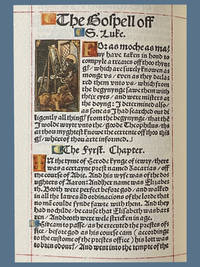 The Gospell off
S. Luke.
For as moche as ma/
ny have taken in hond to
compyle a treates off thoo thyn/
gs/ which are surely knowen a/
monge vs/ even as they decla/
red them vnto vs/ which from
the begynynge sawe them with
their eyes/ and were misters at
the doyng: I determined also/
as sone as I had searched out di
ligently all thinges from the begynynge/ that
I wolde wryte vnto the/ goode Theophilus: that
thou myghtest knowe the certente off thoo thi
gs/ wheroff thou arte informed.
The Fyrst. Chapter.
In the tyme of Herode kynge of iewry/ there
was a certayne prest named Zacarias/ off
the course of Abie. And his wyfe was of the doo
ughters of Aaron: And her name was Elizabeth.
Booth were perfect before god/ and walked
in all the lawes and ordinacions of the lorde that
no man coulde fynde fawte with them. And they
had no childe/ be cause that Elisabeth was barren
And booth were wele stricken in age.
Hit cam to passe/ as he executed the prestes off
fice/ before god as his course cam (accordinge
to the custome of the prestes office) his lott was
to bren odoures/ And went into the temple of the